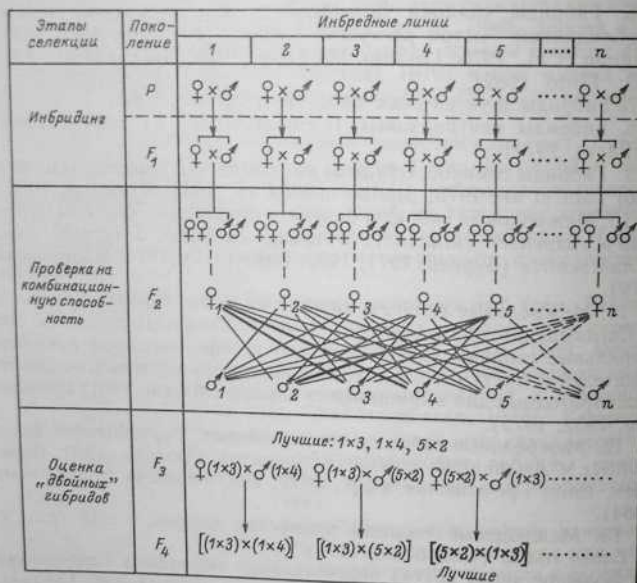 Этапы селекции
Поко-
ление
Инбредные линии
1 2 3 4 5 ..... n
Инбридинг
P
♀×♂ ♀×♂ ♀×♂ ♀×♂ ♀×♂ ..... ♀×♂
F₁
♀×♂ ♀×♂ ♀×♂ ♀×♂ ♀×♂ ..... ♀×♂
Проверка на
комбинацион-
ную способ-
ность
F₂
♀♀ ♂♂ ♀♀ ♂♂ ♀♀ ♂♂ ♀♀ ♂♂ ♀♀ ♂♂ ... ♀♀ ♂♂
♀1 ♀2 ♀3 ♀4 ♀5 ..... ♀n
♂1 ♂2 ♂3 ♂4 ♂5 ..... ♂n
Оценка
„двойных”
гибридов
Лучшие: 1×3, 1×4, 5×2
F₃
♀(1×3)×♂(1×4) ♀(1×3)×♂(5×2) ♀(5×2)×♂(1×3) ........
F₄
[(1×3)×(1×4)] [(1×3)×(5×2)] [(5×2)×(1×3)] ........
Лучшие